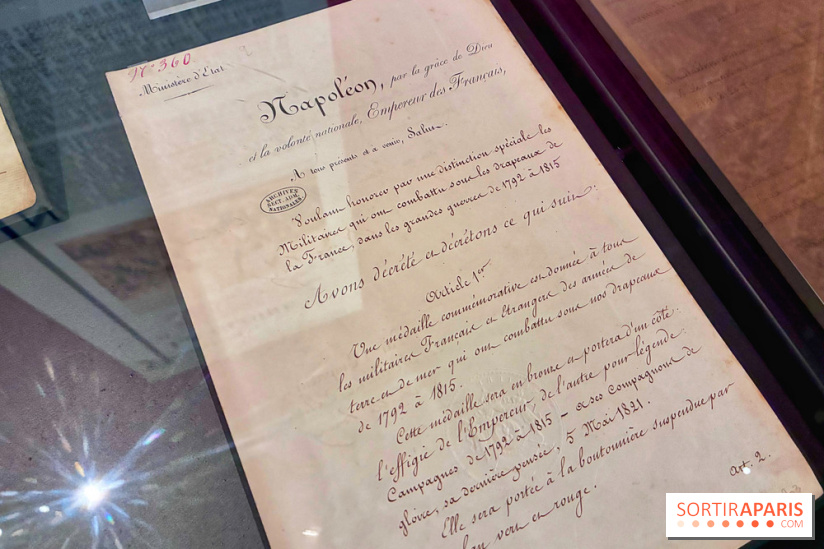 N° 360
Ministère d'Etat
Napoléon, par la grâce de Dieu
et la volonté nationale, Empereur des Français,
A tous présents et à venir, Salut.
ARCHIVES
SECT. ADM.
NATIONALES
Voulant honorer par une distinction spéciale les
Militaires qui ont combattu sous les drapeaux de
la France, dans les grandes guerres de 1792 à 1815
Avons décrété et décrétons ce qui suit:
Article 1er
Une médaille commémorative est donnée à tous
les militaires Français et Etrangers des armées de
terre et de mer qui ont combattu sous nos drapeaux
de 1792 à 1815.
Cette médaille sera en bronze et portera d'un côté
l'effigie de l'Empereur, de l'autre pour légende:
Campagnes de 1792 à 1815 - à ses Compagnons de
gloire, sa dernière pensée, 5 Mai 1821.
Elle sera portée à la boutonnière suspendue par
vert et rouge.
Art. 2.
SORTIRAPARIS
.COM